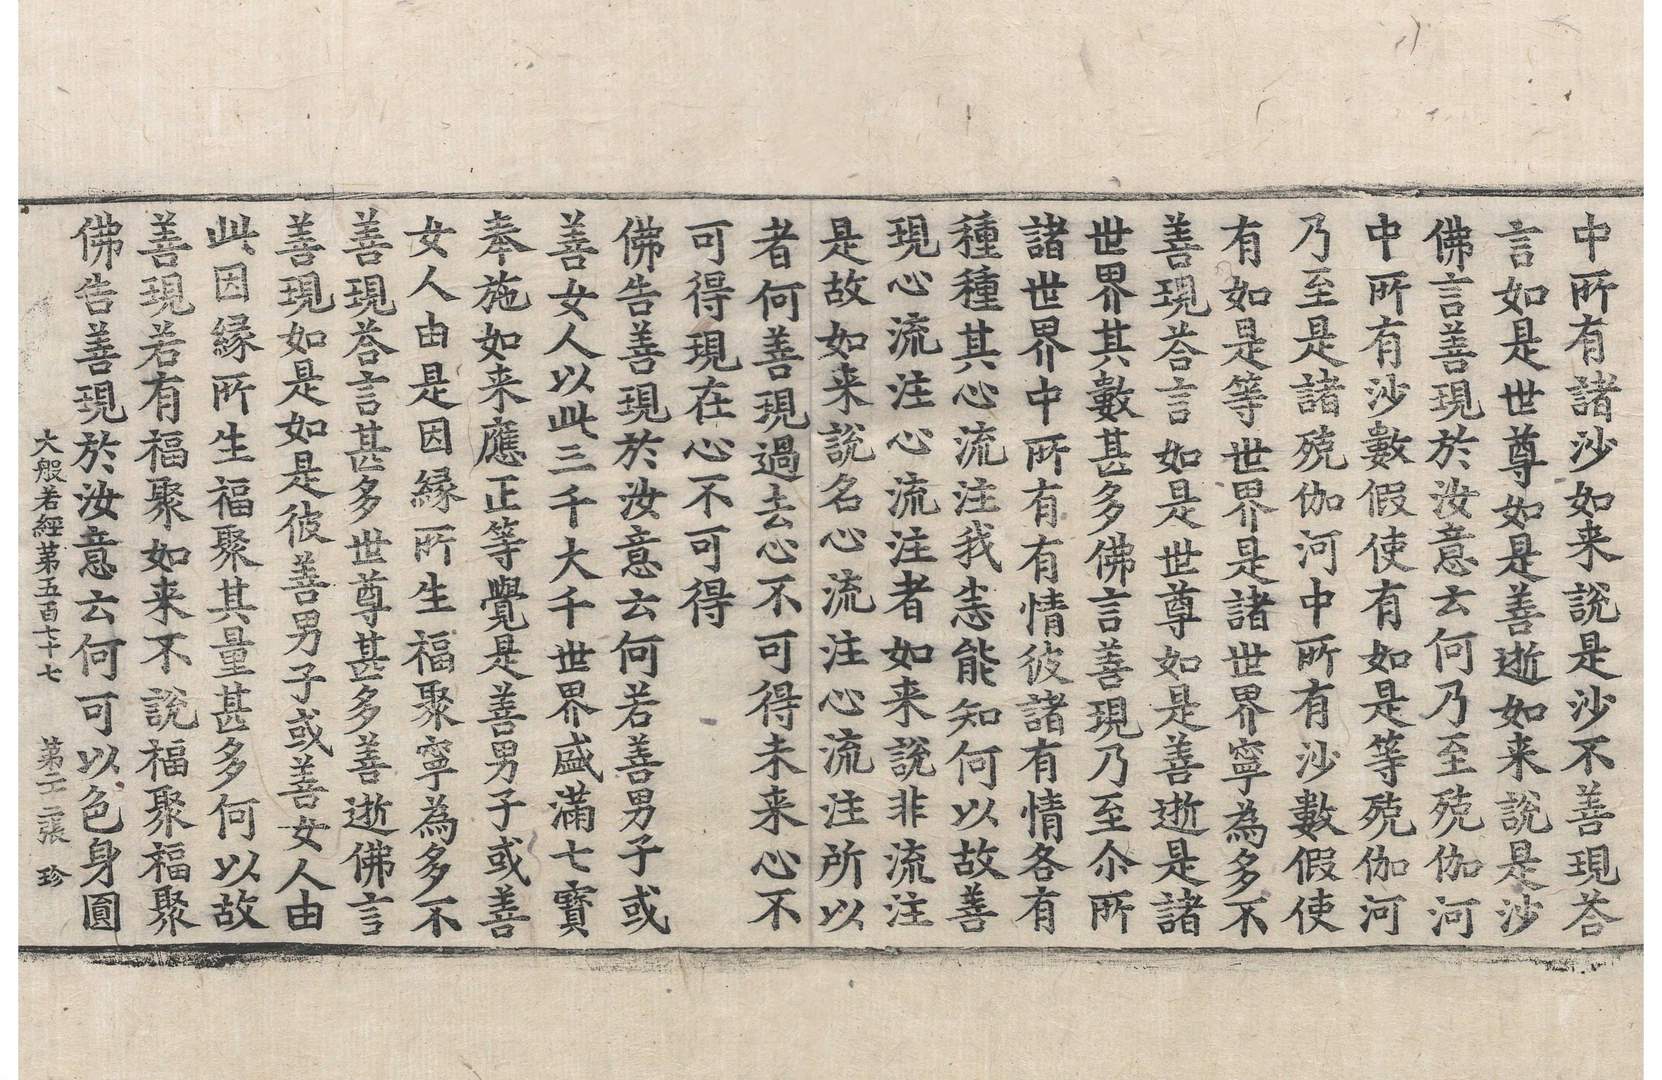 中所有諸沙如来說是沙不善現荅
言如是世尊如是善逝如来說是沙
佛言善現於汝意云何乃至殑伽河
中所有沙數假使有如是等殑伽河
乃至是諸殑伽河中所有沙數假使
有如是等世界是諸世界寧為多不
善現荅言如是世尊如是善逝是諸
世界其數甚多佛言善現乃至尒所
諸世界中所有有情彼諸有情各有
種種其心流注我悉能知何以故善
現心流注心流注者如来說非流注
是故如来說名心流注心流注所以
者何善現過去心不可得未来心不
可得現在心不可得
佛告善現於汝意云何若善男子或
善女人以此三千大千世界盛滿七寳
奉施如来應正等覺是善男子或善
女人由是因縁所生福聚寧為多不
善現荅言甚多世尊甚多善逝佛言
善現如是如是彼善男子或善女人由
此因縁所生福聚其量甚多何以故
善現若有福聚如来不說福聚福聚
佛告善現於汝意云何可以色身圓
大般若經第五百七十七 第二二張 珍